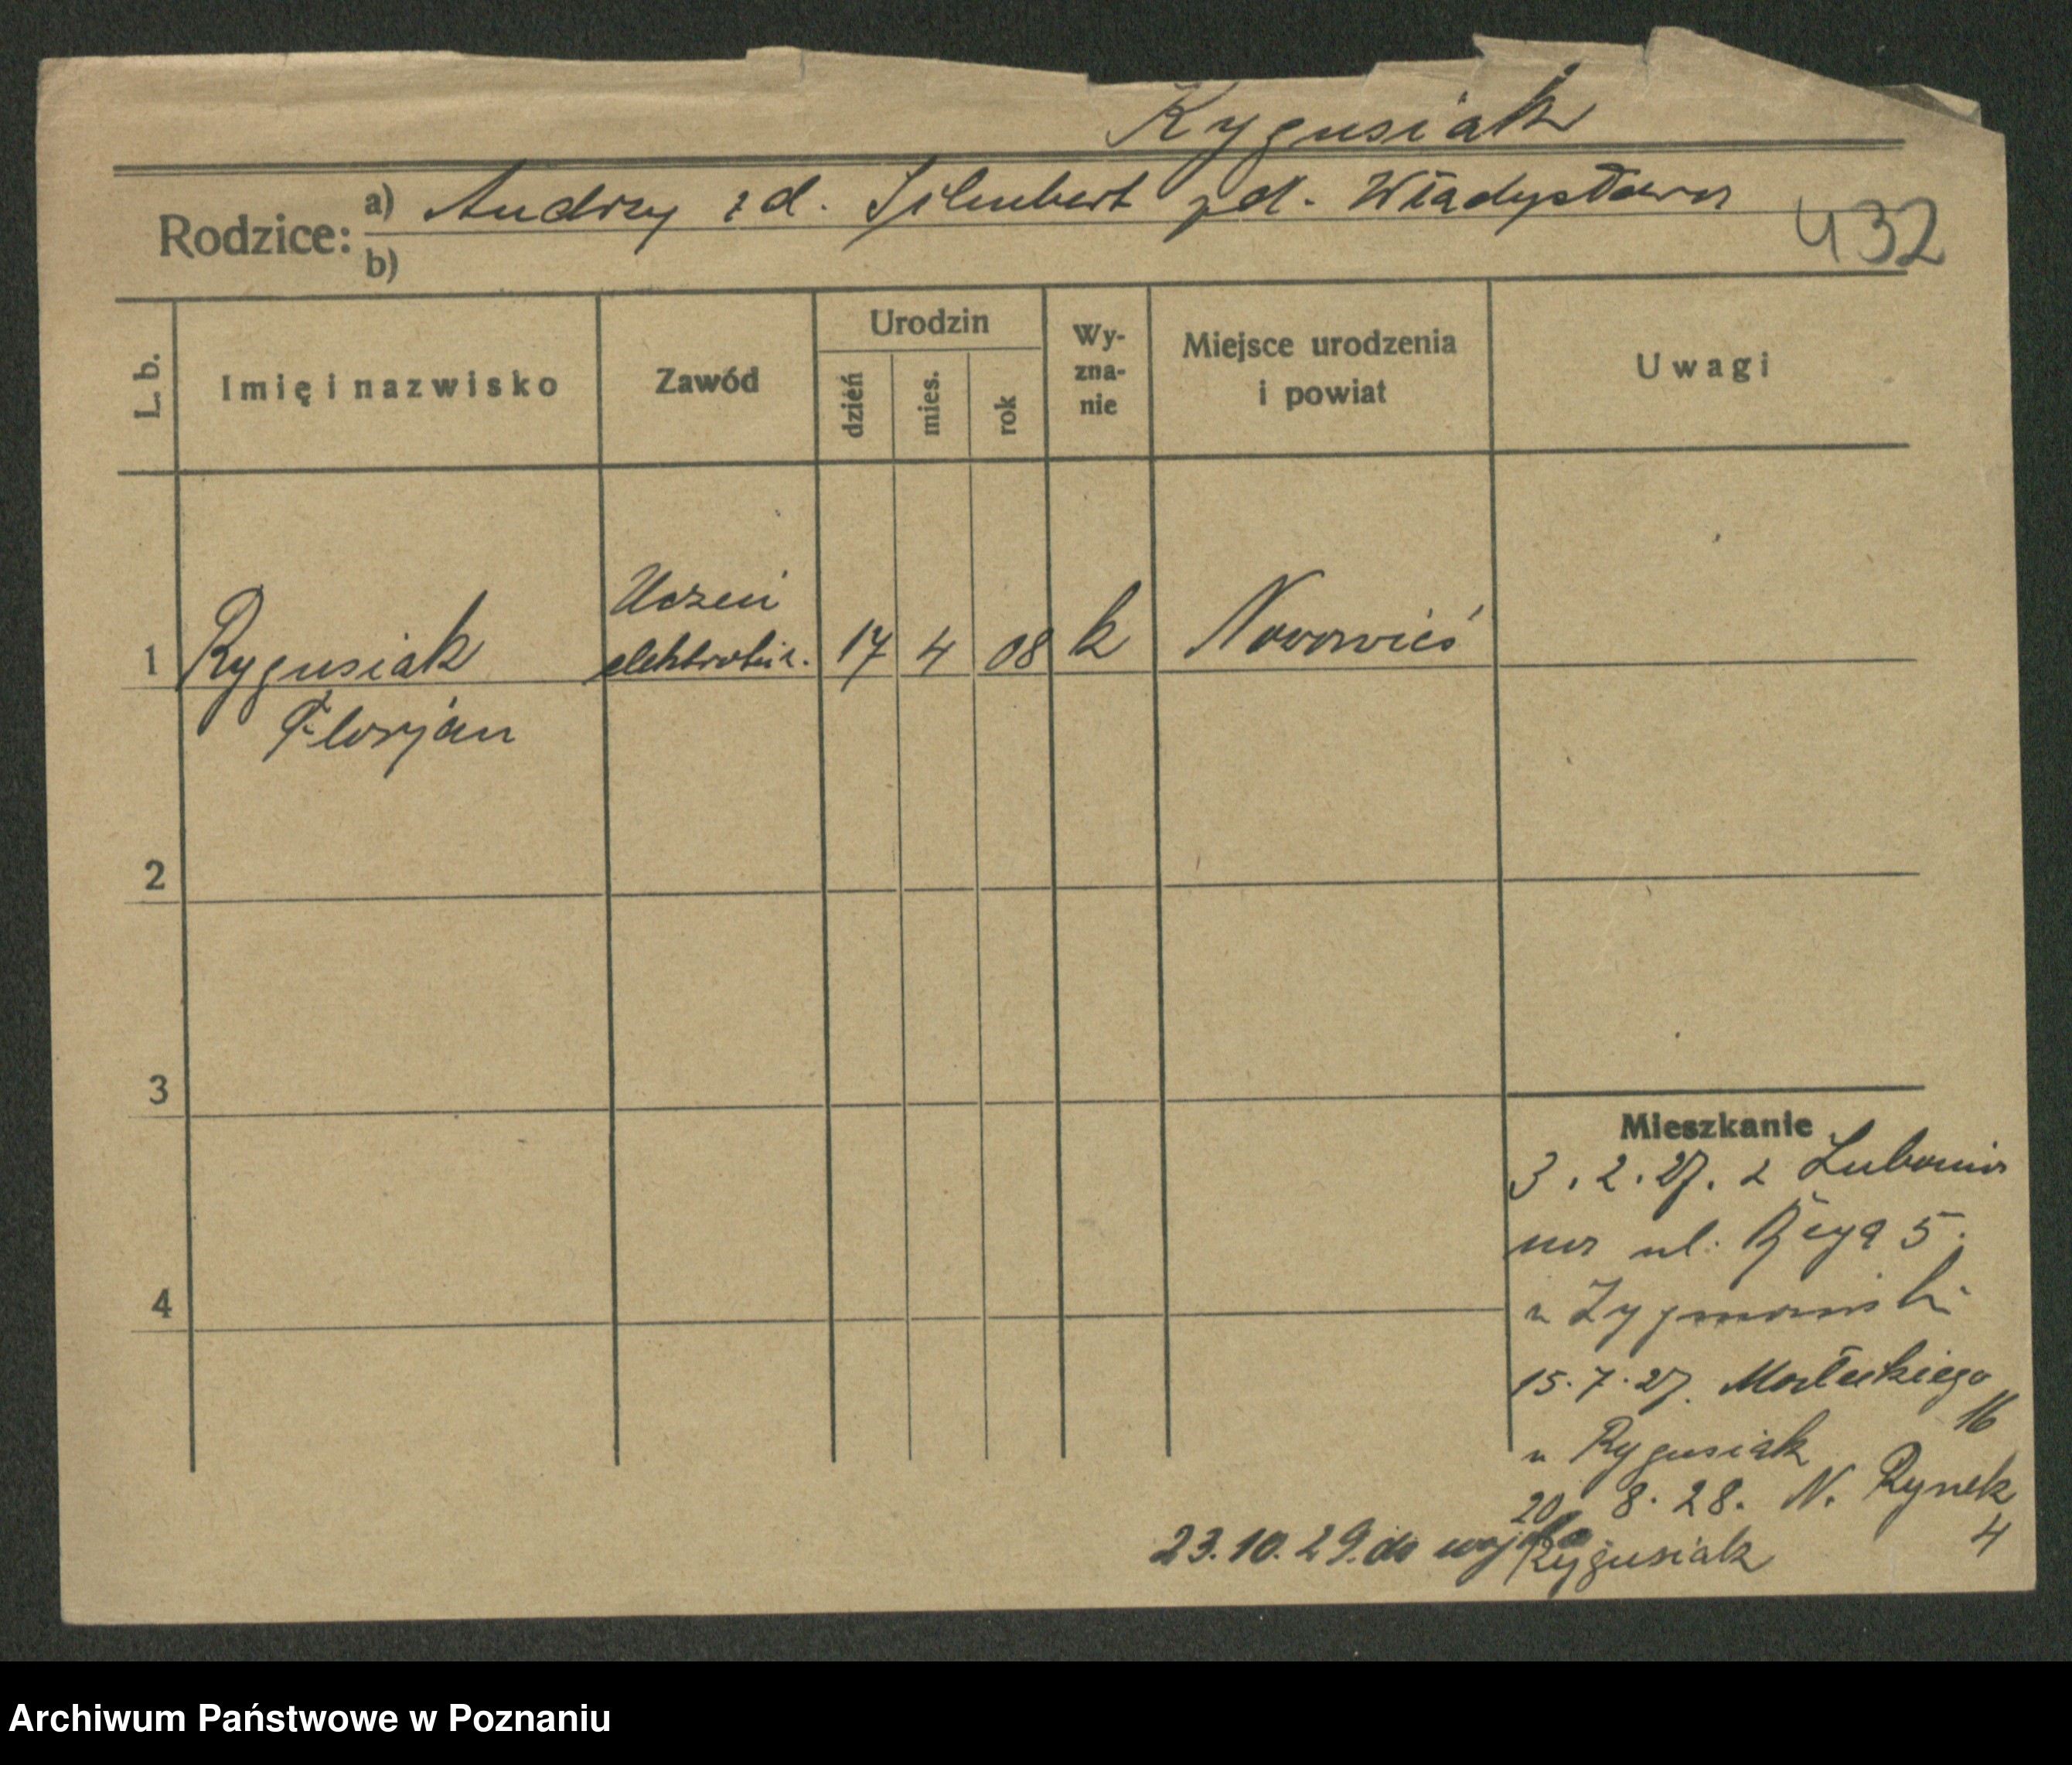 Rygusiak
Rodzice: a) Andrzej zd. Szlubert zd. Władysława
b)
432
L. b.
Imię i nazwisko
Zawód
Urodzin
dzień
mies.
rok
Wy-
zna-
nie
Miejsce urodzenia
i powiat
Uwagi
1 Rygusiak
Florjan
Uczeń
elektrotech.
17 4 08 k Nowowieś
2
3
4
Mieszkanie
3.2.27. z Lubonia
ul. Reya 5.
u
15.7.27.
16
u Rygusiak
20. 8. 28. N. Rynek
4
Rygusiak
23.10.29. do wojska
Archiwum Państwowe w Poznaniu